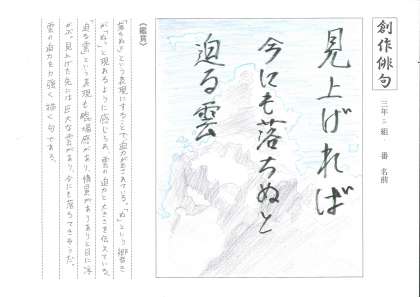 創作俳句
三年二組　番 名前
見上げれば
今にも落ちぬと
迫る雲
《鑑賞》
「落ちぬ」という表現にすることで迫力が出されている。「ぬ」という響き
が「ぬっ」と現れるように感じられ、雲の迫力と大きさを伝えている。
「迫る雲」という表現も臨場感があり、情景がありありと目に浮
かぶ。見上げた先には巨大な雲があり、今にも落ちてきそうだ。
雲の迫力を力強く描く句である。